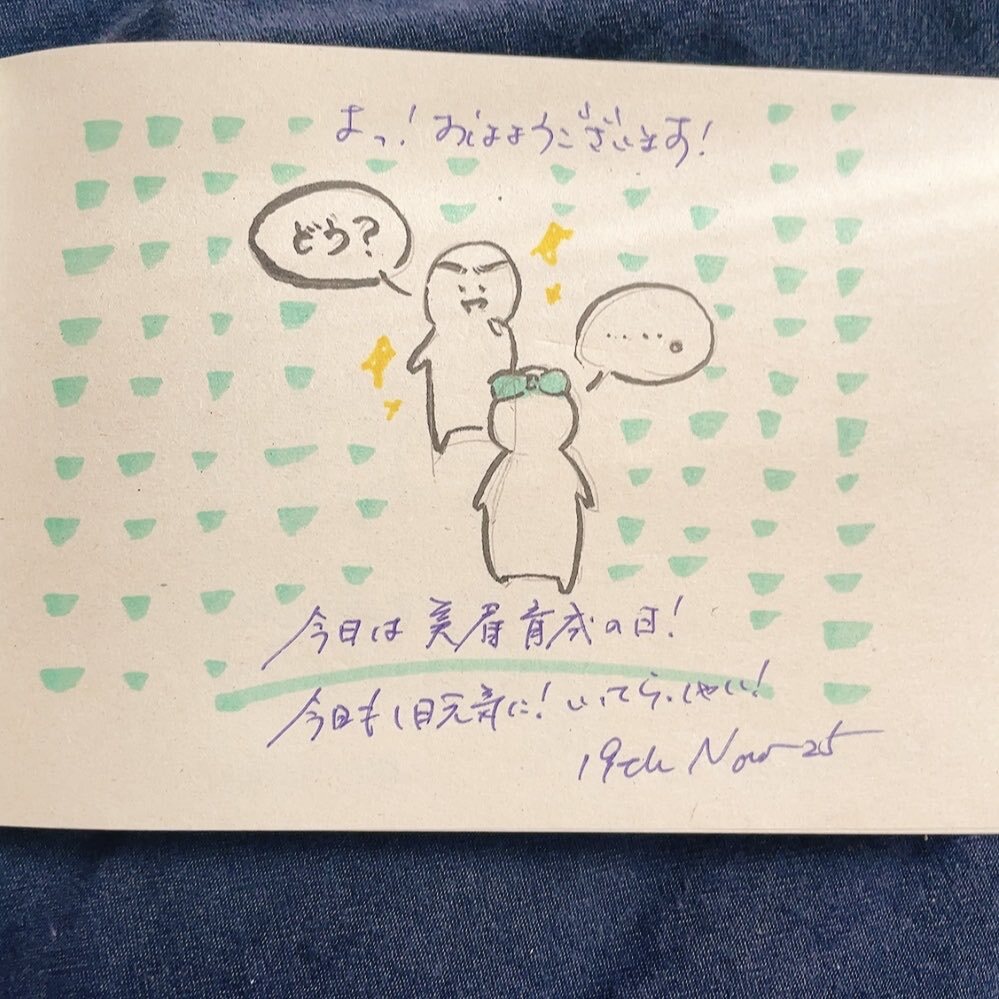 よっ！おはようございます！
どう？
.....。
今日は美眉育成の日！
今日も1日元気に！いってらっしゃい！
19th Nov 25